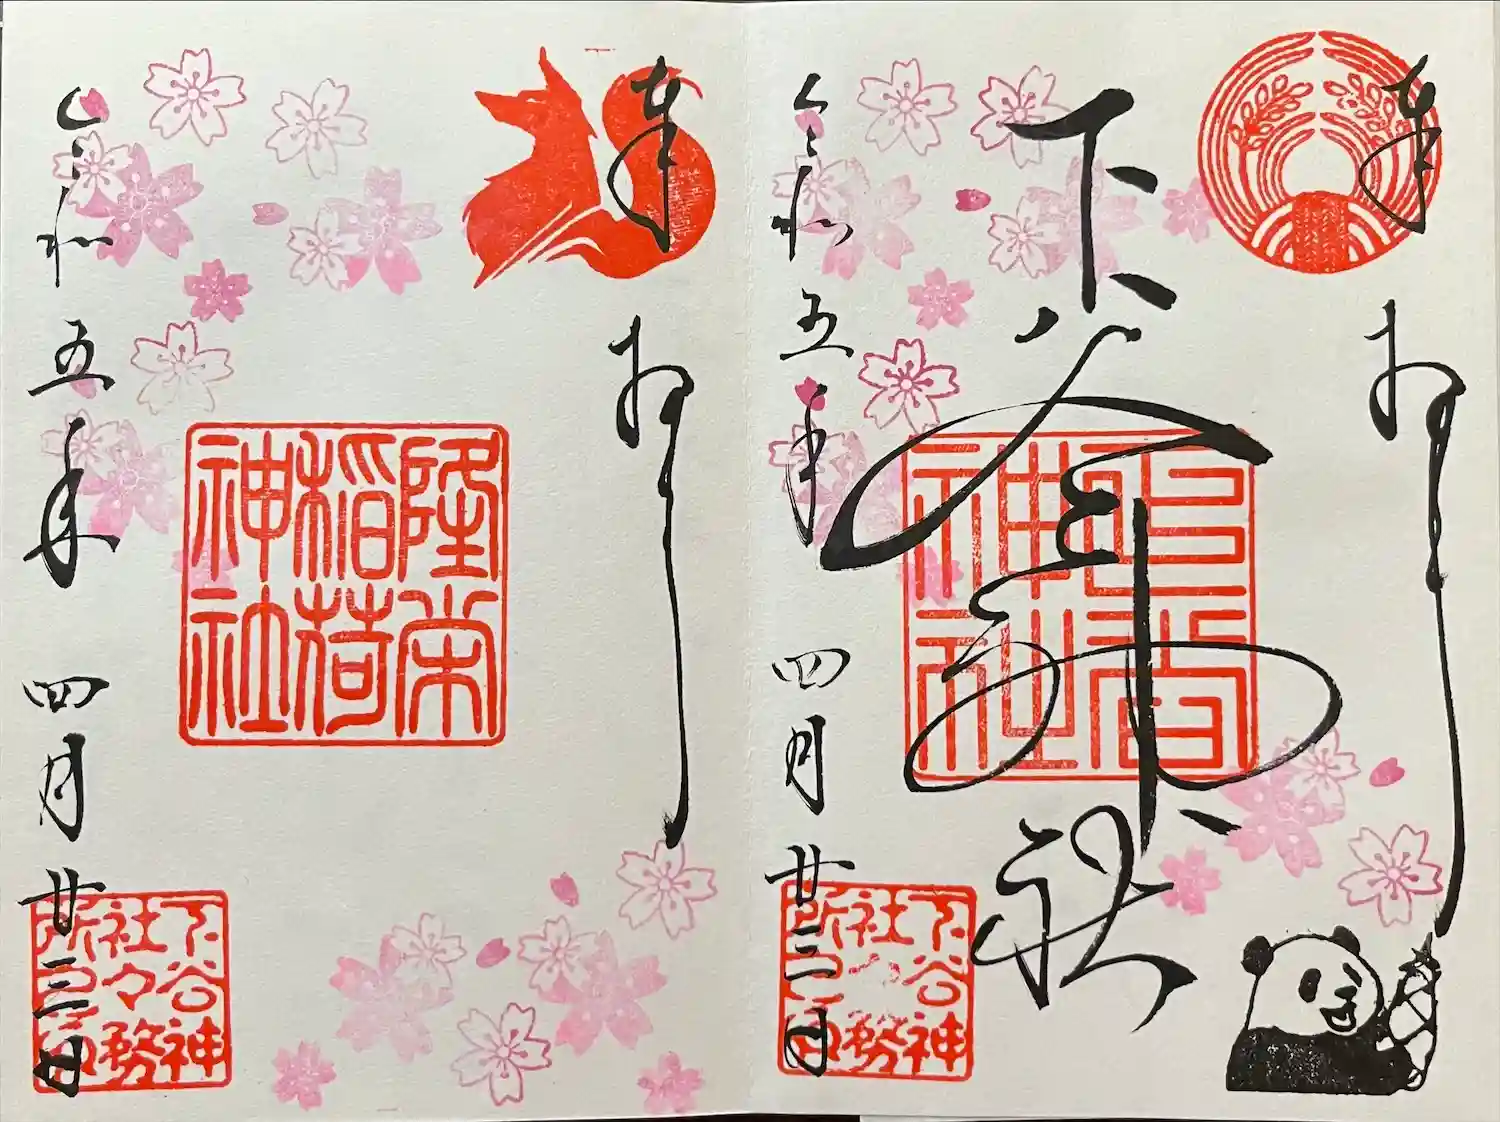 奉拝
下谷神社
下谷
神社
令和五年四月廿三日
下谷神
社々務
所之印
奉拝
隆栄
稲荷
神社
令和五年四月廿三日
下谷神
社々務
所之印